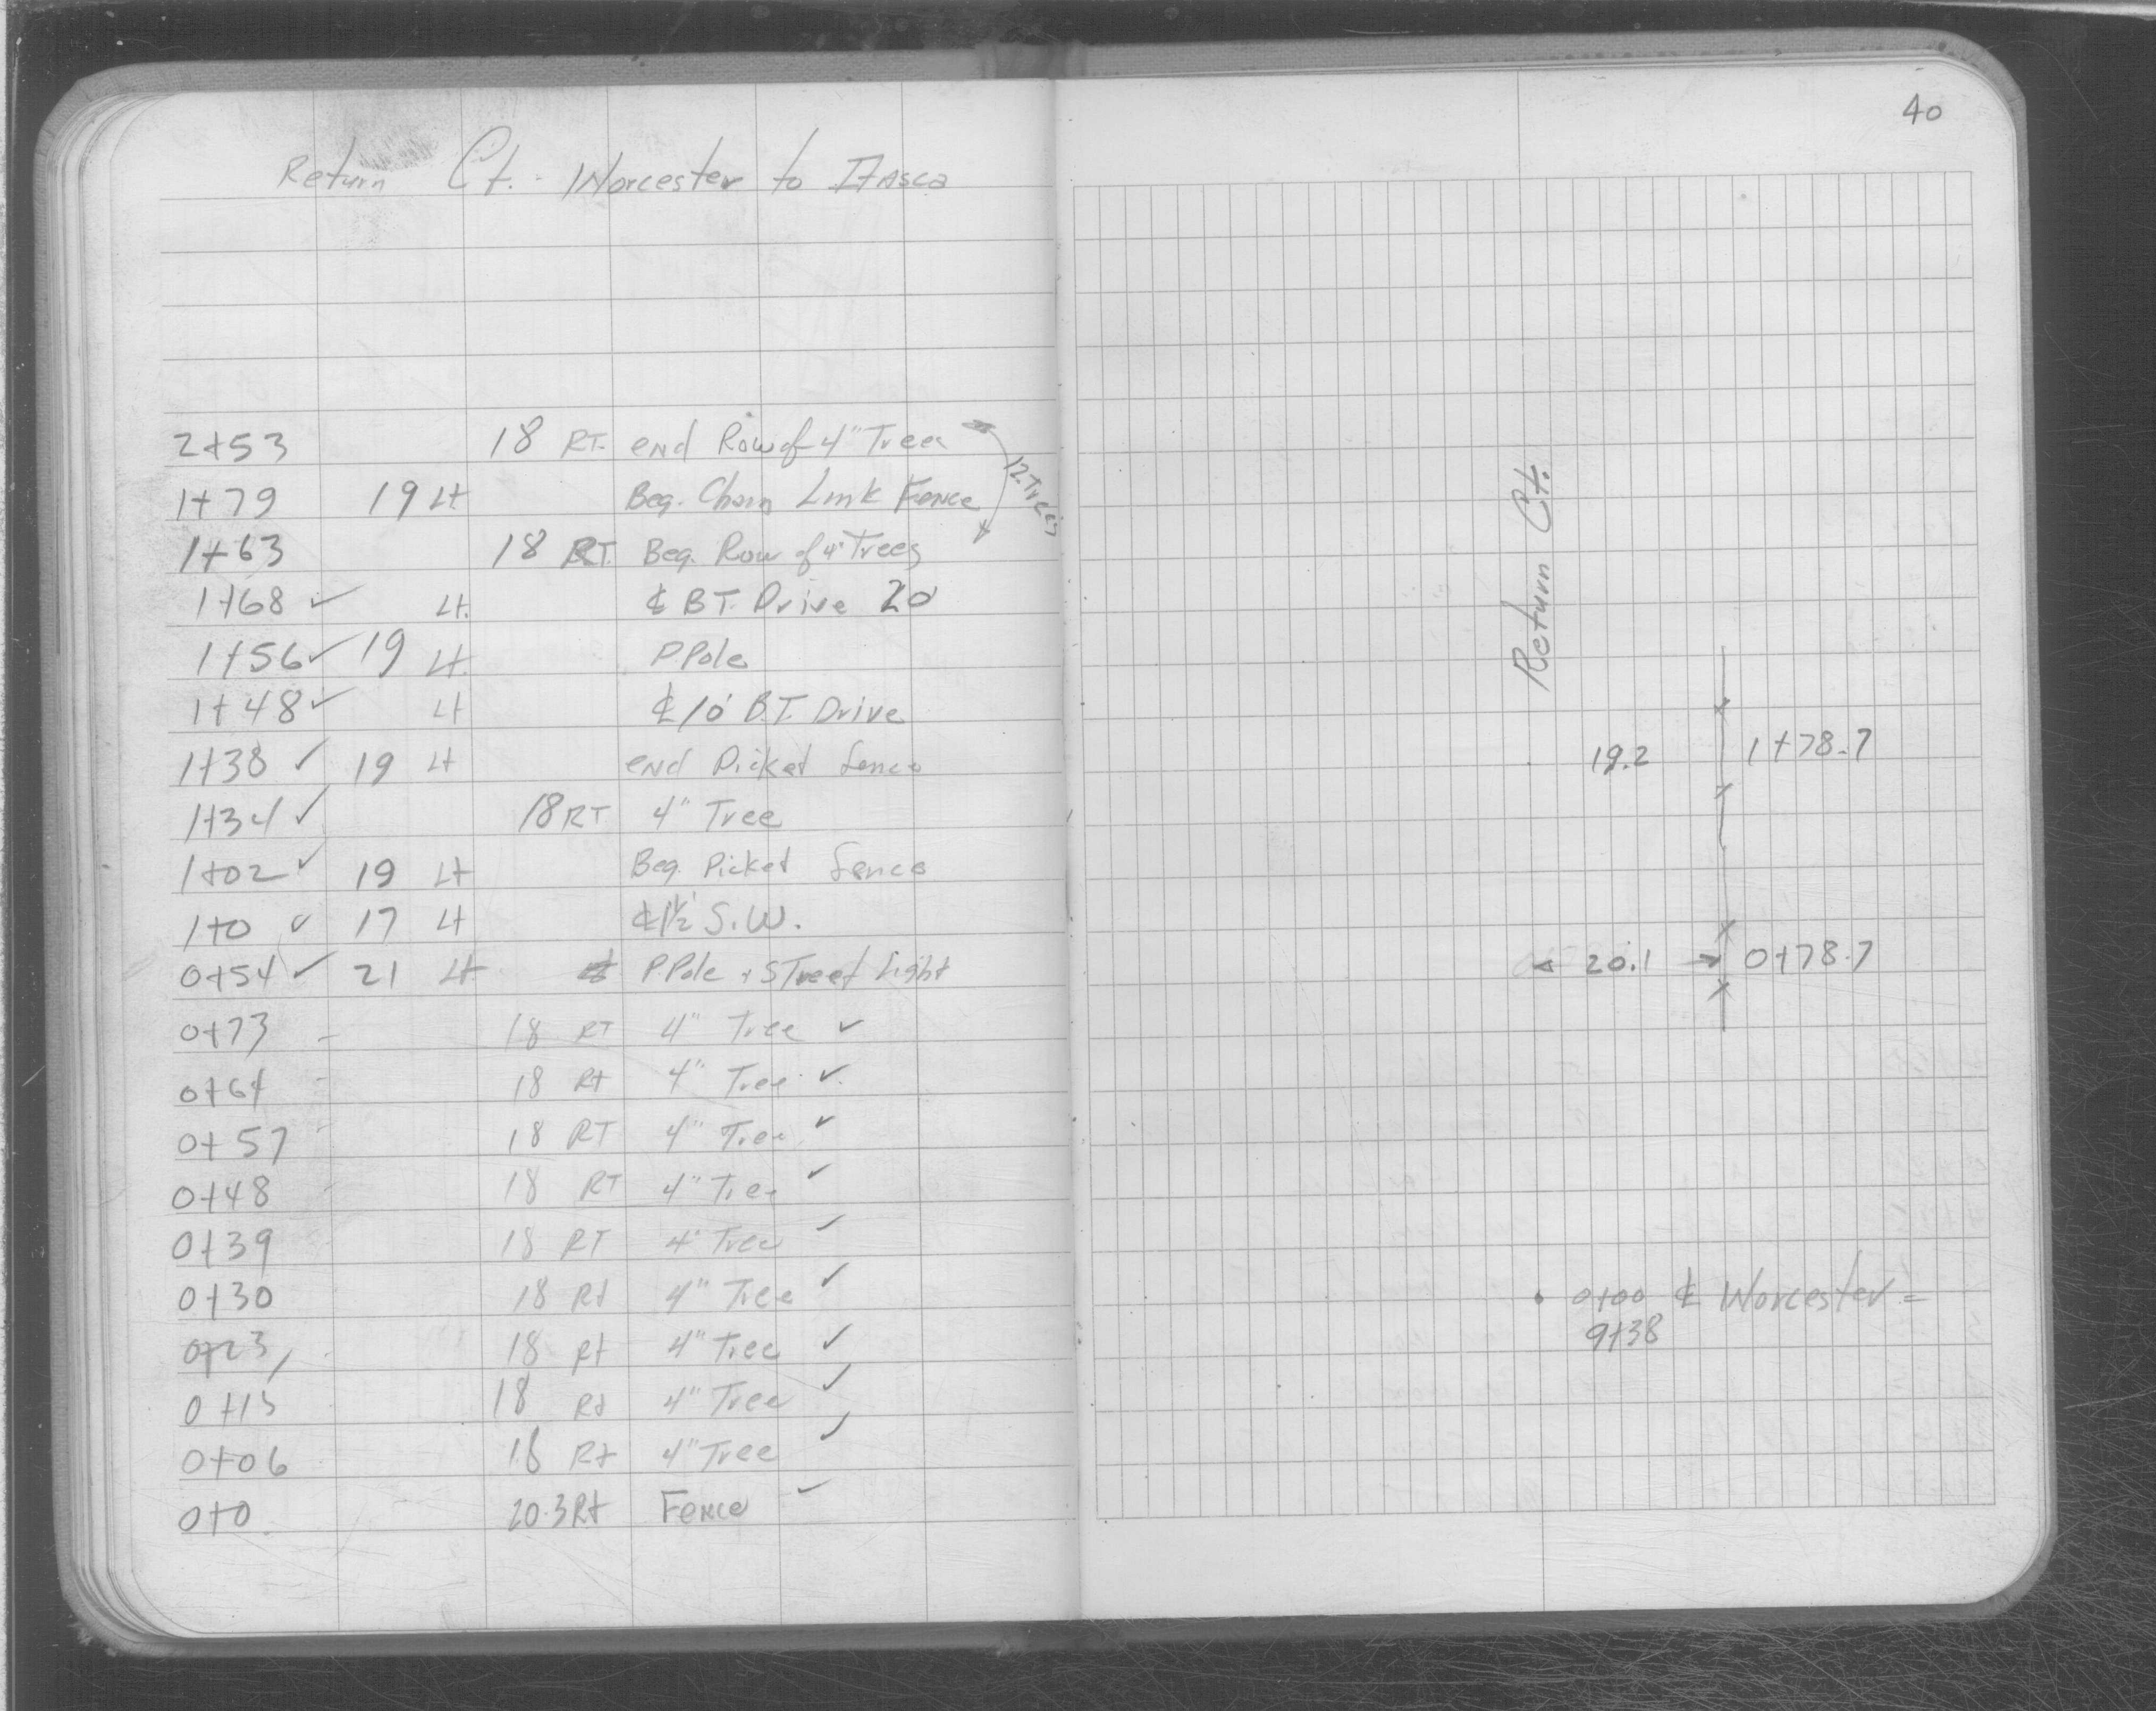 Return Ct. - Worcester to Itasca
2+53 18 RT. end Row of 4" Trees
12-Trees
1+79 19 Lt Beg. Chain Link Fence
1+63 18 RT. Beg. Row of 4" Trees
1+68 ✓ Lt. ℄ BT. Drive 20'
1+56 ✓ 19 Lt. P.Pole
1+48 ✓ Lt ℄ 10' B.T. Drive
1+38 ✓ 19 Lt end Picket fence
1+34 ✓ 18 RT 4" Tree
1+02 ✓ 19 Lt Beg. Picket fence
1+0 ✓ 17 Lt ℄ 1½' S.W.
0+54 ✓ 21 Lt P.Pole + STreet Light
0+73 - 18 RT 4" Tree ✓
0+64 - 18 Rt 4" Tree ✓
0+57 - 18 RT 4" Tree ✓
0+48 - 18 RT 4" Tree ✓
0+39 - 18 RT 4" Tree ✓
0+30 18 Rt 4" Tree ✓
0+23 18 Rt 4" Tree ✓
0+15 18 Rt 4" Tree ✓
0+06 18 Rt 4" Tree ✓
0+0 20.3 Rt Fence ✓
40
Return Ct.
19.2 1+78.7
← 20.1 → 0+78.7
• 0+00 ℄ Worcester =
9+38